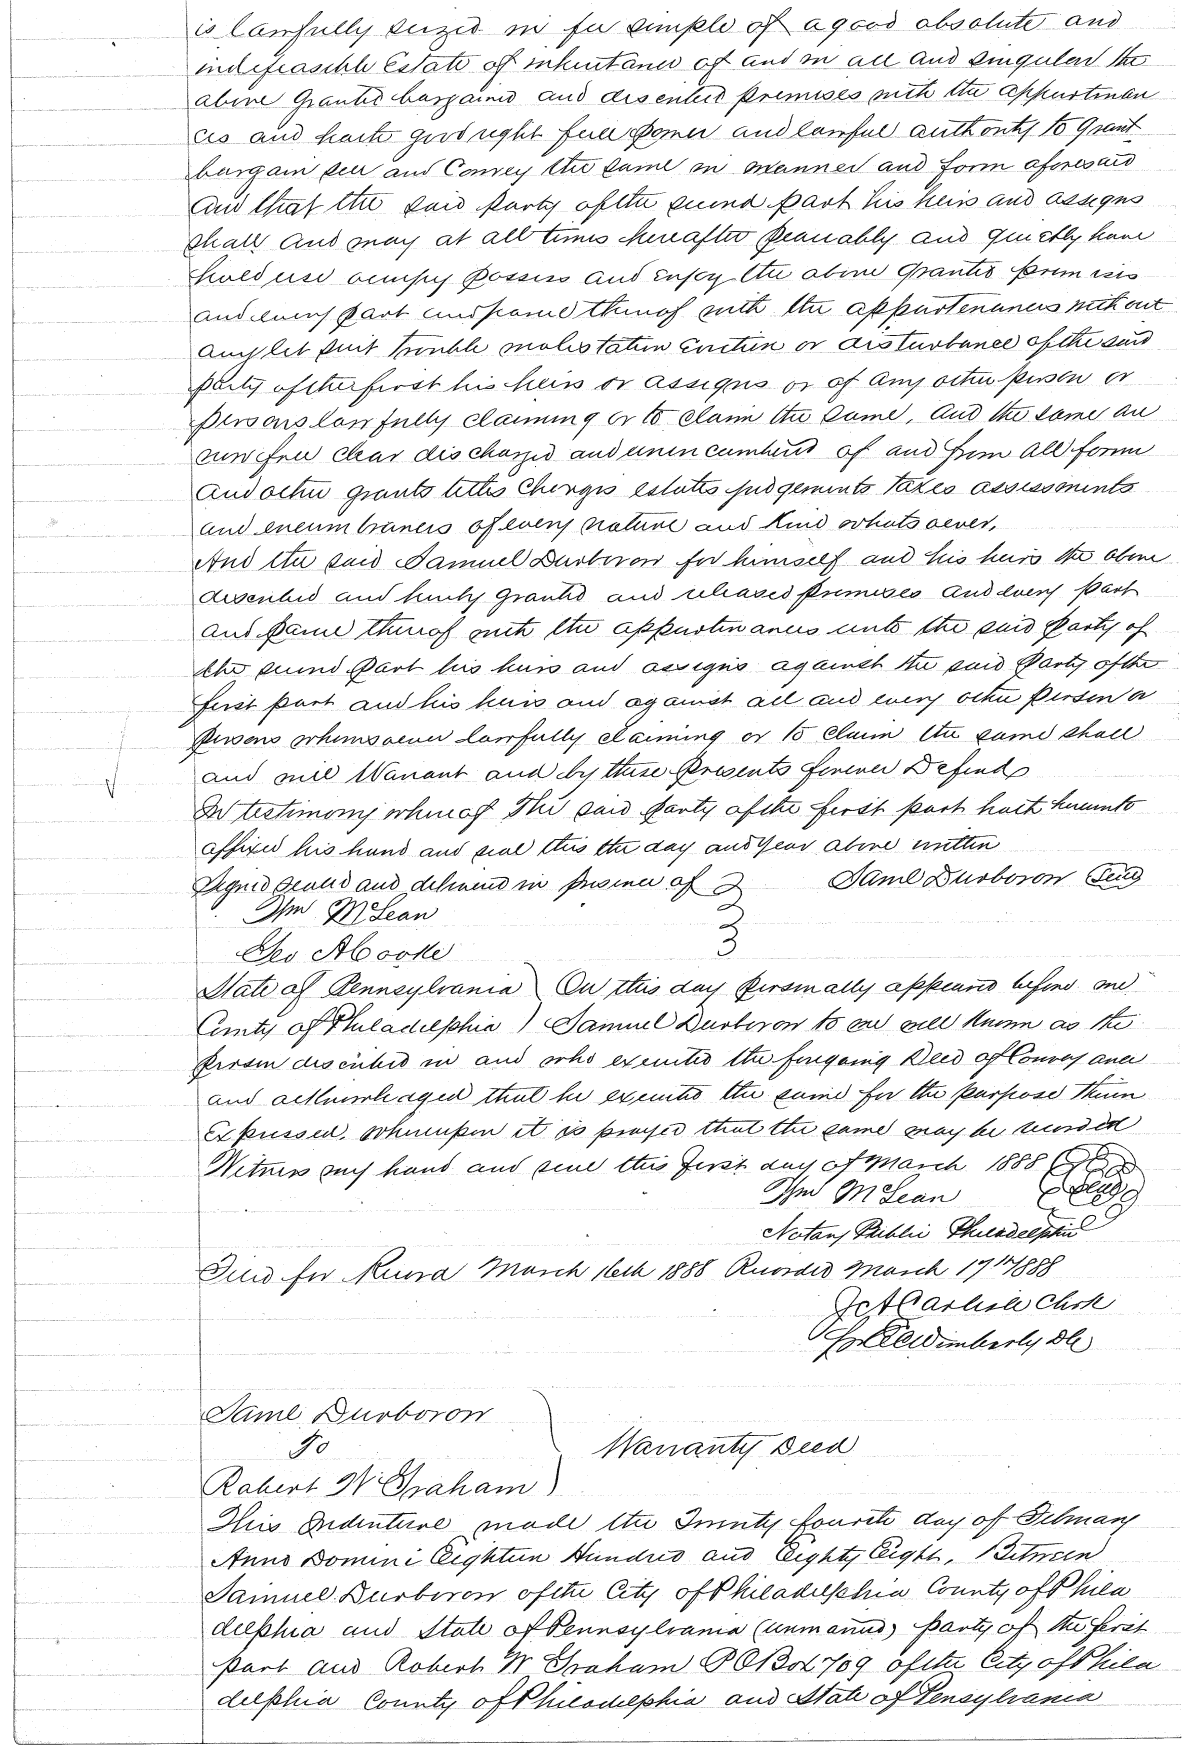 is lawfully seized in fee simple of a good absolute and
indefeasible Estate of inheritance of and in all and singular the
above Granted bargained and described premises with the appurtenan
ces and hath good right full power and lawful authority to Grant
bargain sell and Convey the same in manner and form aforesaid
And that the said party of the second part his heirs and assigns
shall and may at all times hereafter peaceably and quietly have
hold use occupy possess and enjoy the above Granted premises
and every part and parcel thereof with the appurtenances without
any let suit trouble molestation eviction or disturbance of the said
party of the first his heirs or assigns or of any other person or
persons lawfully claiming or to claim the same, And the same are
now free clear discharged and unencumbered of and from all former
and other grants titles Charges estates judgements taxes assessments
and encumbrances of every nature and kind whatsoever,
And the said Samuel Durborow for himself and his heirs the above
described and hereby granted and released premises and every part
and parcel thereof with the appurtenances unto the said party of
the second part his heirs and assigns against the said party of the
first part and his heirs and against all and every other person or
persons whomsoever lawfully claiming or to claim the same shall
and will Warrant and by these presents forever Defend
In testimony whereof The said party of the first part hath hereunto
affixed his hand and seal this the day and year above written
Signed sealed and delivered in presence of } Saml Durborow Seal
Wm McLean
Geo A Cooke
State of Pennsylvania } On this day personally appeared before me
County of Philadelphia ) Samuel Durborow to me well known as the
person described in and who executed the foregoing Deed of Conveyance
and acknowledged that he executed the same for the purpose therein
Expressed, whereupon it is prayed that the same may be recorded
Witness my hand and seal this first day of March 1888
Wm McLean Seal
Notary Public Philadelphia
Filed for Record March 16th 1888 Recorded March 17th 1888
Carlisle Clerk
Wimberly DC
Saml Durborow
To
Warranty Deed
Robert W Graham )
This Indenture made the Twenty fourth day of February
Anno Domini Eighteen Hundred and Eighty Eight, Between
Samuel Durborow of the City of Philadelphia County of Phila
delphia and State of Pennsylvania (unmarried) party of the first
part and Robert W Graham P O Box 709 of the City of Phila
delphia County of Philadelphia and State of Pensylvania